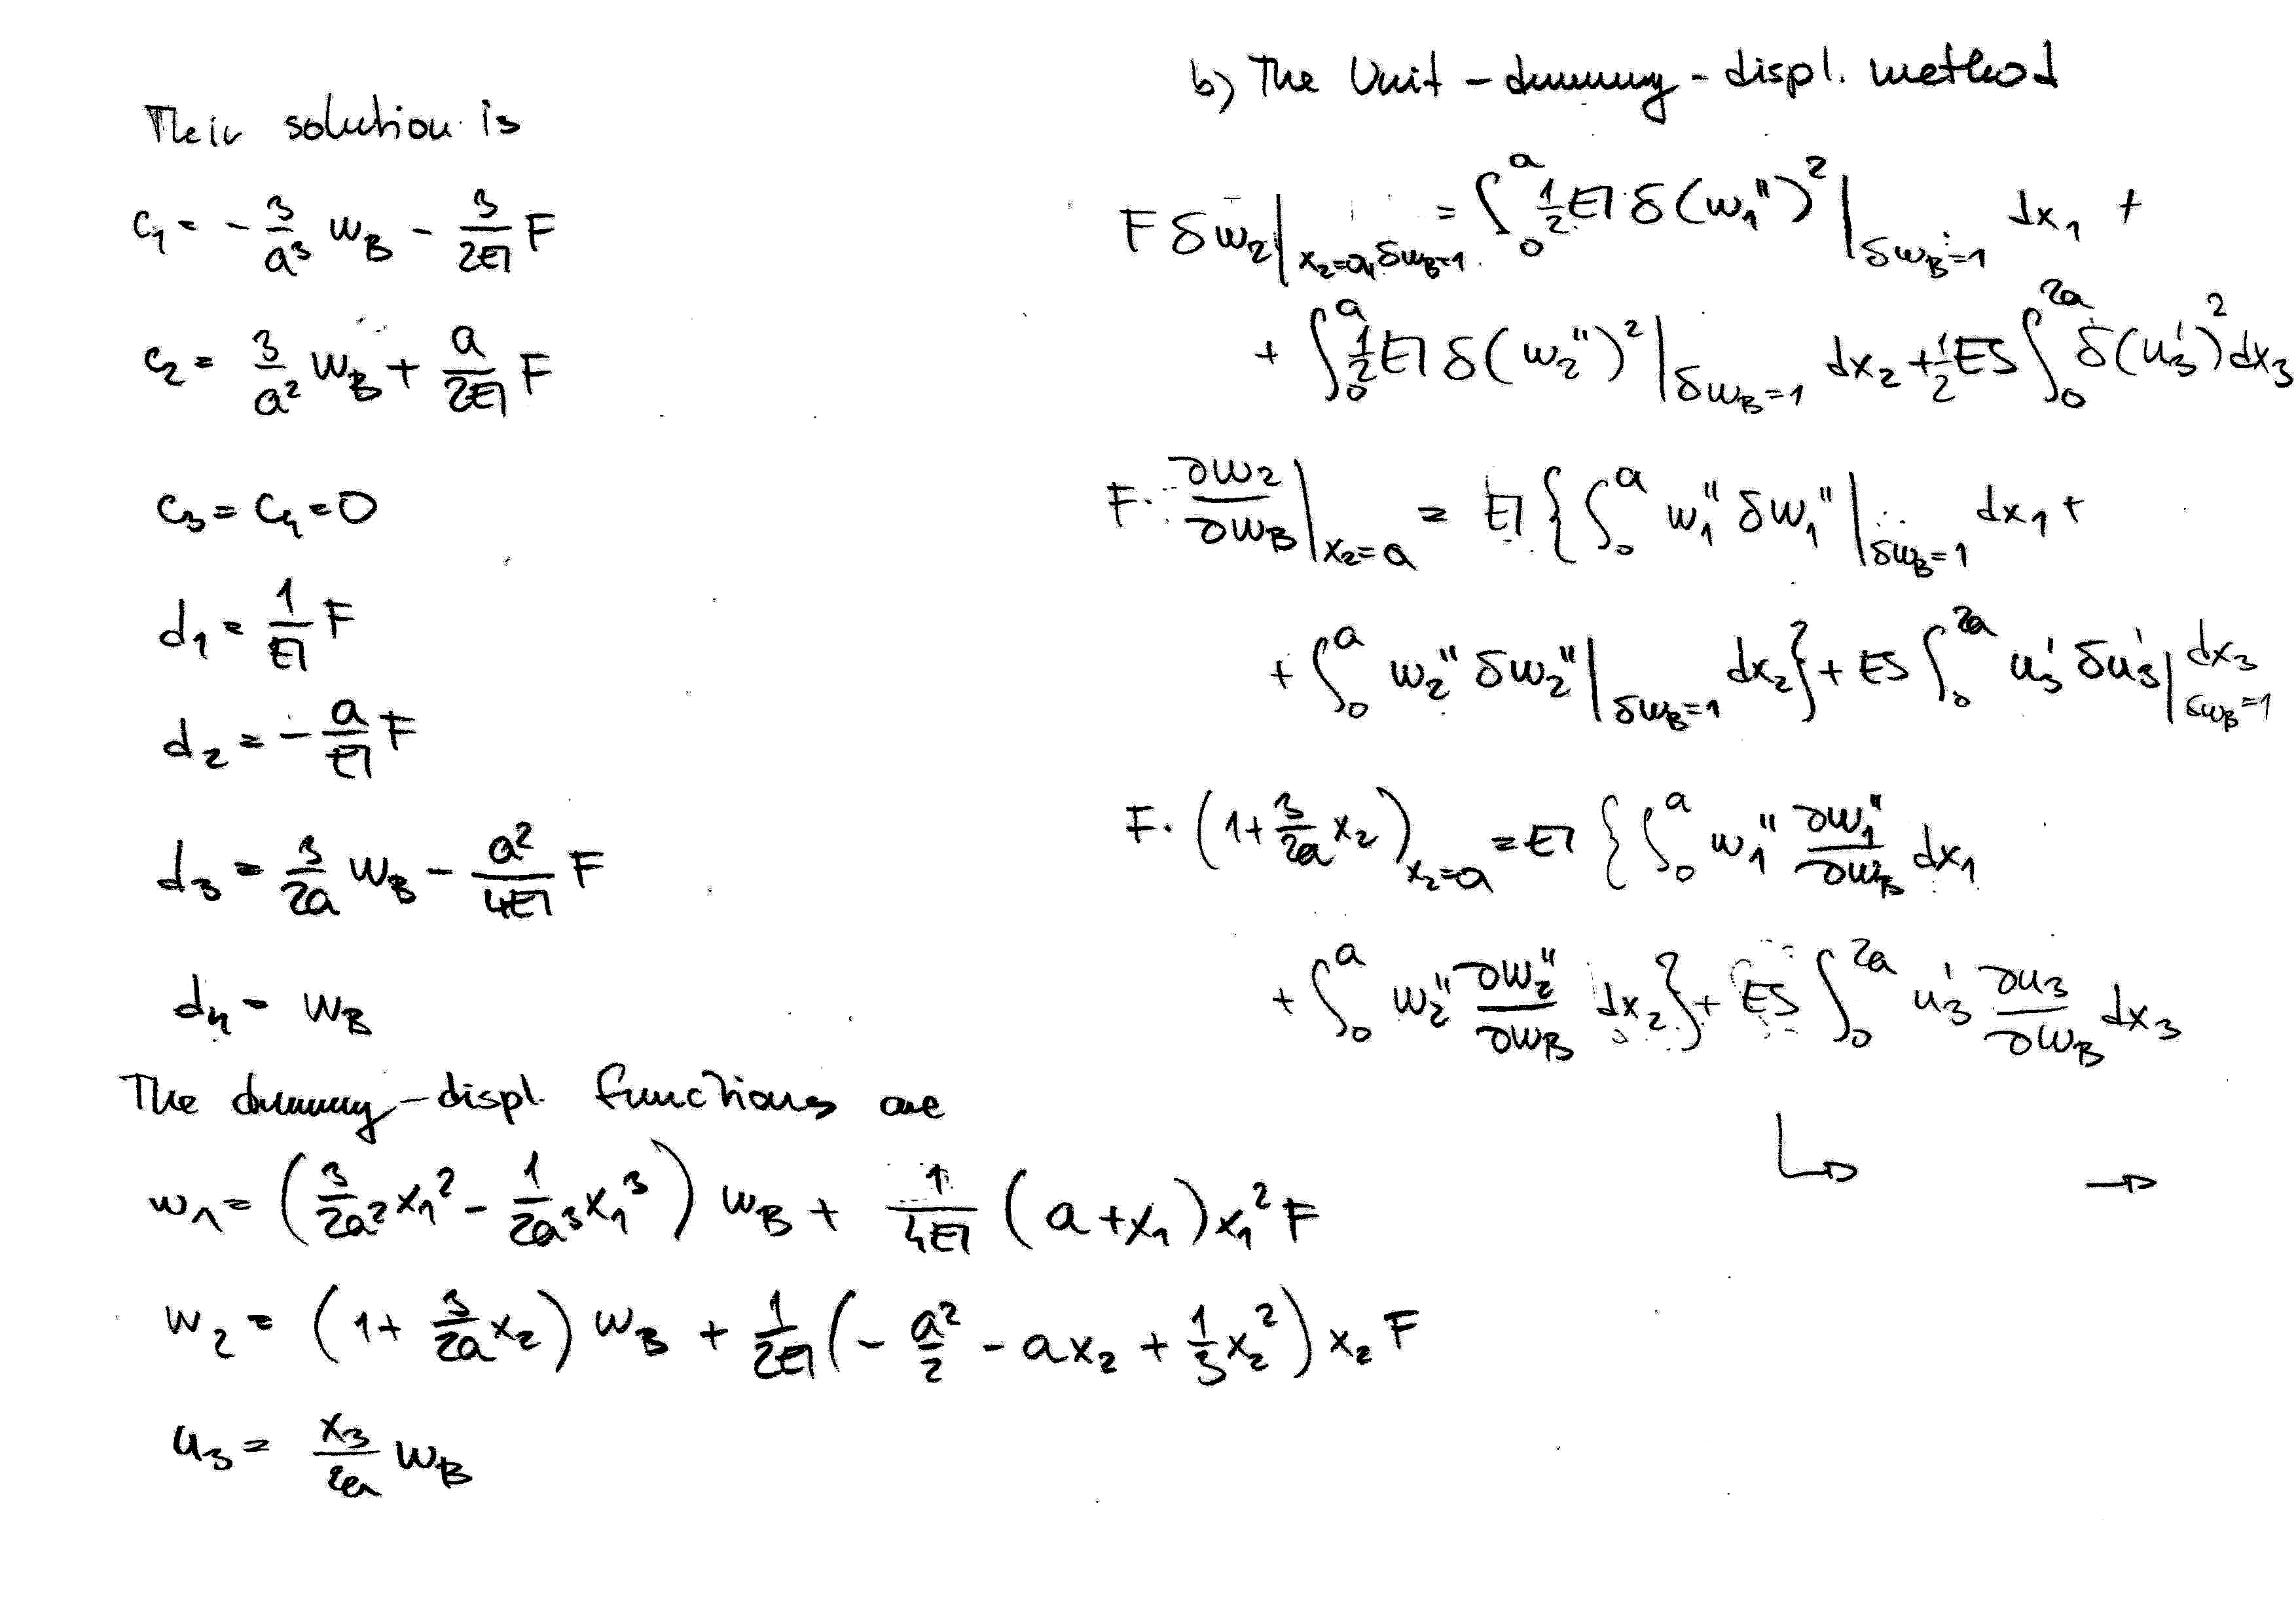 Their solution is
c₁ = - 3/a³ w_B - 3/2EI F
c₂ = 3/a² w_B + a/2EI F
c₃ = c₄ = 0
d₁ = 1/EI F
d₂ = - a/EI F
d₃ = 3/2a w_B - a²/4EI F
d₄ = w_B
The dummy-displ. functions are
w₁ = (3/2a² x₁² - 1/2a³ x₁³) w_B + 1/4EI (a + x₁) x₁² F
w₂ = (1 + 3/2a x₂) w_B + 1/2EI (- a²/2 - a x₂ + 1/3 x₂²) x₂ F
u₃ = x₃/2a w_B
b) The Unit-dummy-displ. method
F δw₂|x₂=a, δw_B=1 = ∫₀^a 1/2 EI δ(w₁'')²|δw_B=1 dx₁ +
+ ∫₀^a 1/2 EI δ(w₂'')²|δw_B=1 dx₂ + 1/2 ES ∫₀^2a δ(u₃')² dx₃
F · ∂w₂/∂w_B|x₂=a = EI {∫₀^a w₁'' δw₁''|δw_B=1 dx₁ +
+ ∫₀^a w₂'' δw₂''|δw_B=1 dx₂} + ES ∫₀^2a u₃' δu₃'|δw_B=1 dx₃
F · (1 + 3/2a x₂)x₂=a = EI {∫₀^a w₁'' ∂w₁''/∂w_B dx₁
+ ∫₀^a w₂'' ∂w₂''/∂w_B dx₂} + ES ∫₀^2a u₃' ∂u₃/∂w_B dx₃